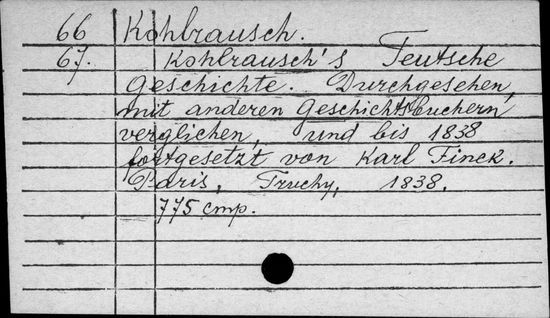 66 Kohlrausch.
67. Kohlrausch's Teutsche
Geschichte. Durchgesehen,
mit anderen Geschichtsbuchern
verglichen, und bis 1838
fortgesetzt von Karl Finck.
Paris, Truchy, 1838.
775 cmp.